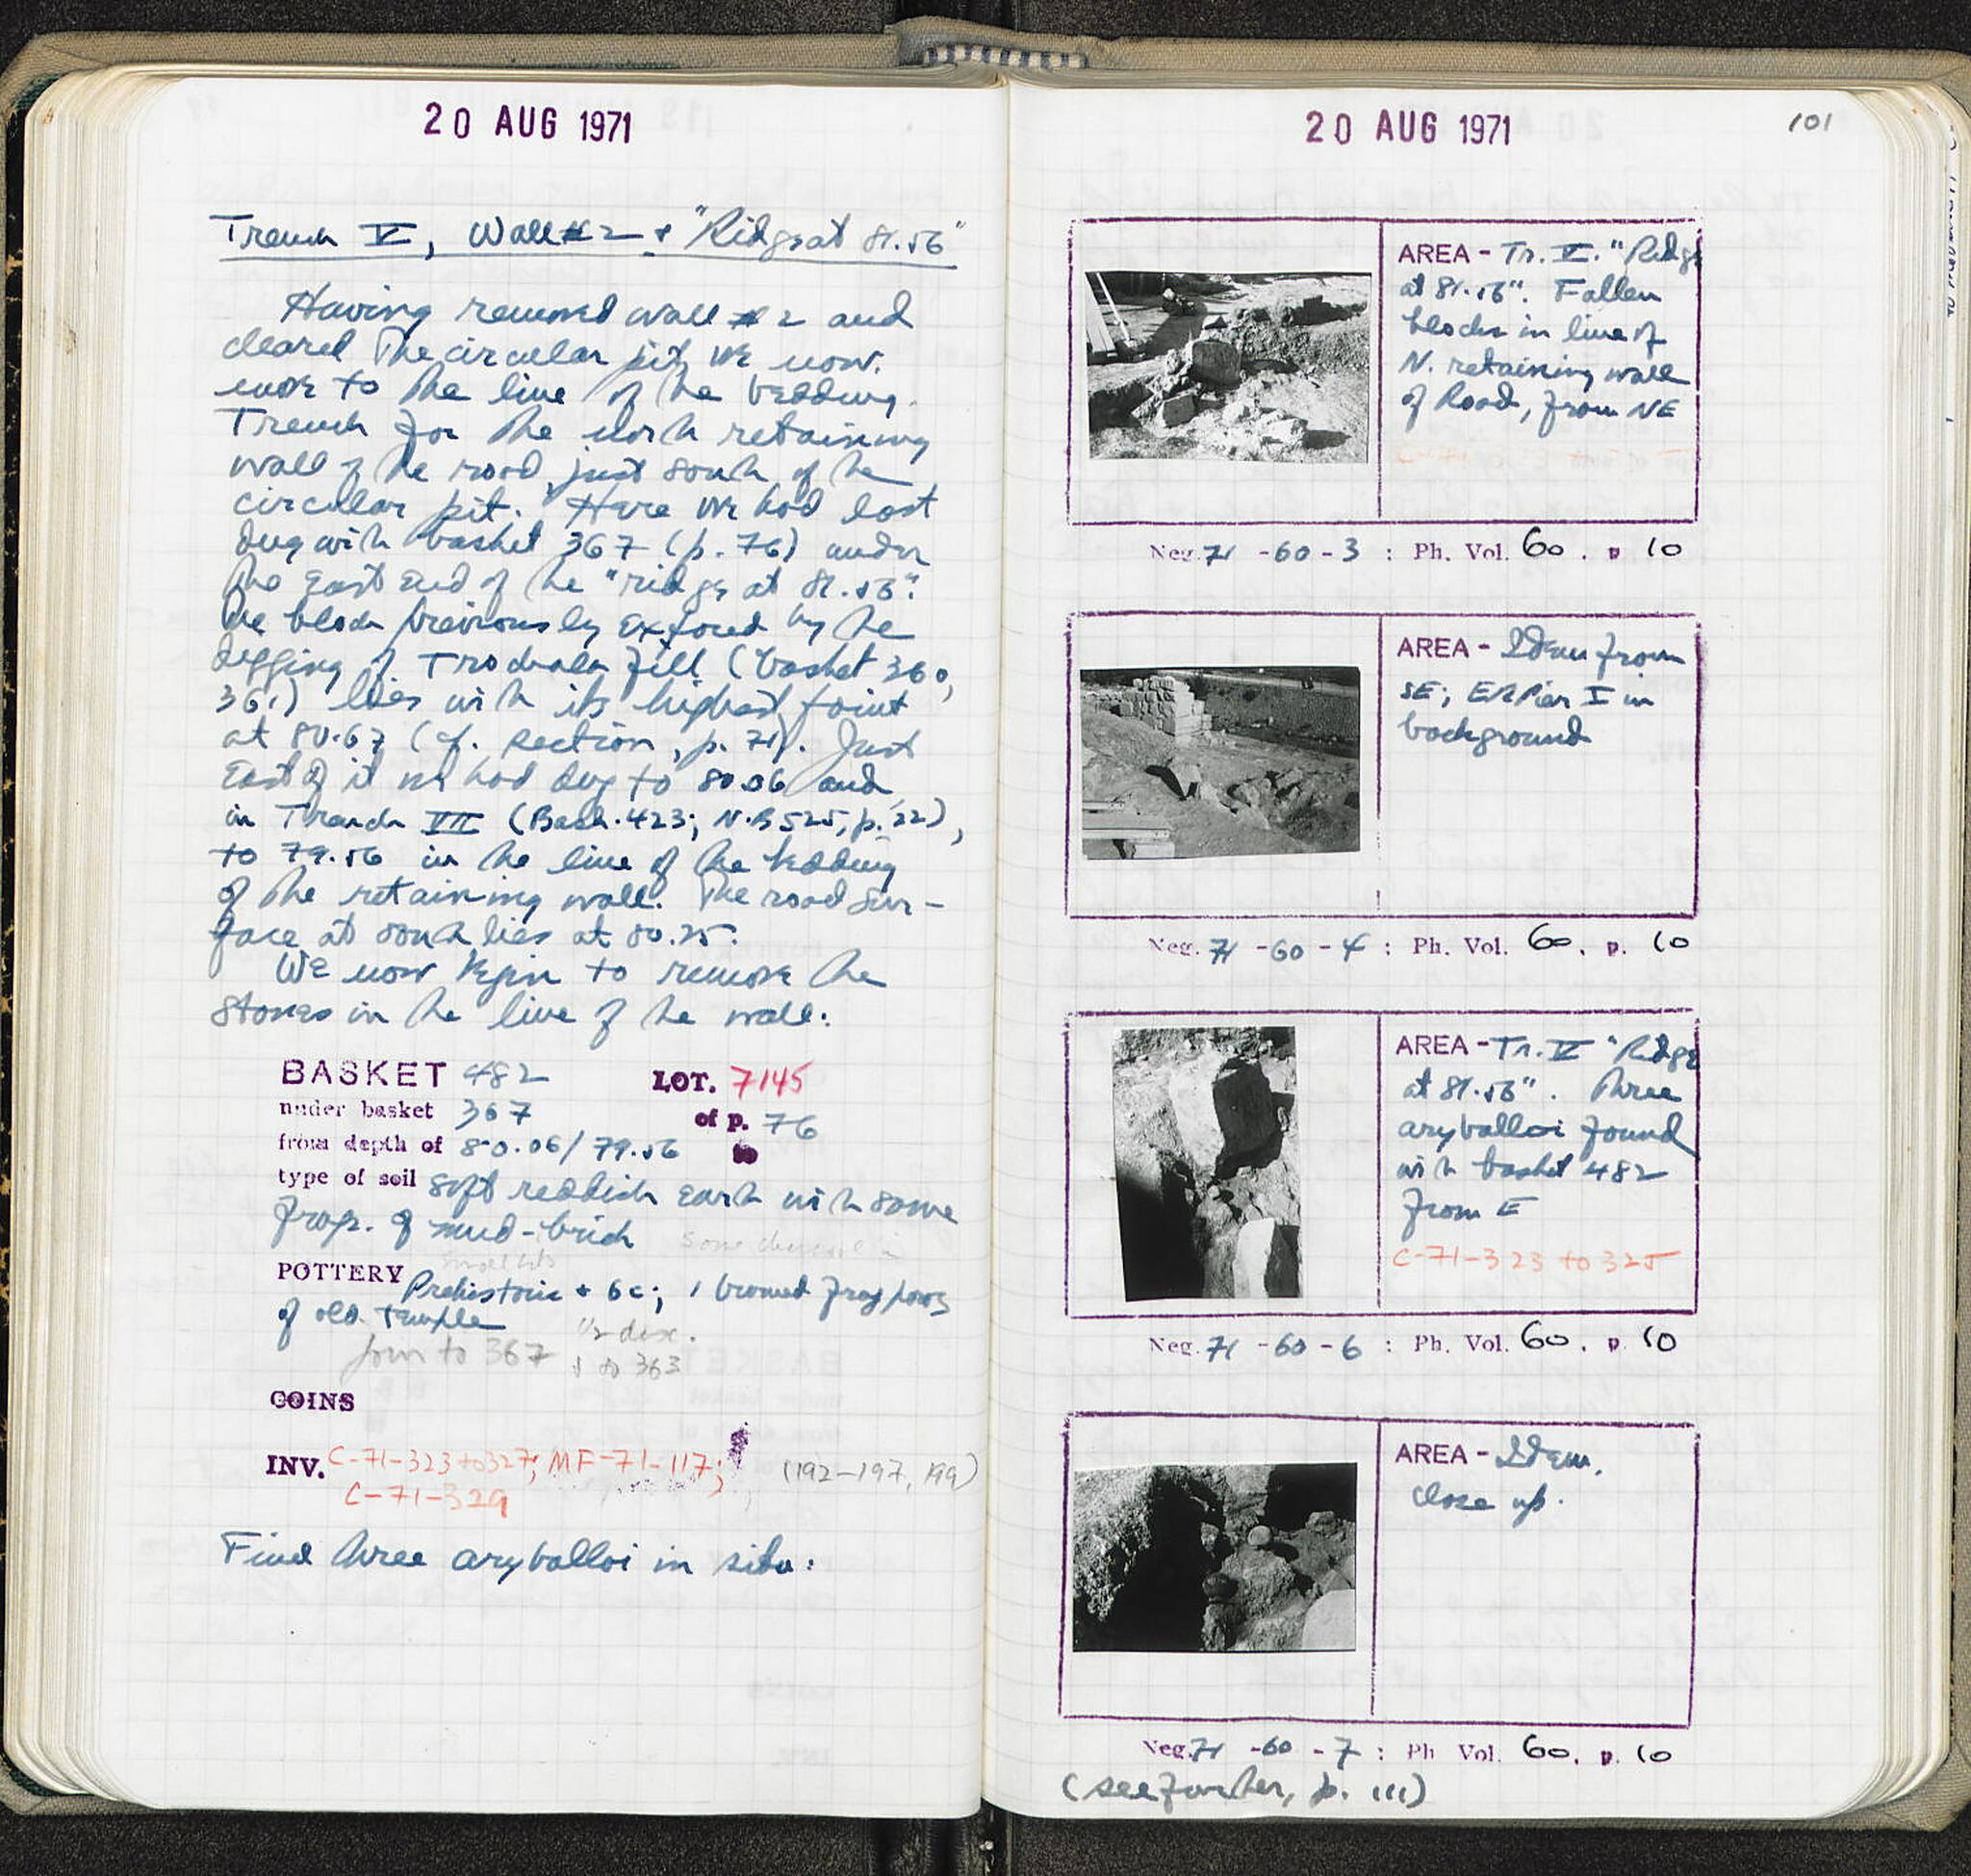 20 AUG 1971
Trench V, Wall #2 & "Ridge at 81.56"
Having removed wall #2 and
cleared the circular pit, we now
move to the line of the bedding
Trench for the north retaining
wall of the road, just south of the
circular pit. Here we had last
dug with basket 367 (p. 76) under
the East end of the "ridge at 81.56".
The block previously exposed by the
digging of fill (basket 360,
361) lies with its highest point
at 80.67 (cf. section, p. 71). Just
East of it we had dug to 80.06 and
in Trench VII (Bask. 423; N.B 525, p. 22),
to 79.56 in the line of the bedding
of the retaining wall. The road sur-
face at south lies at 80.25.
We now begin to remove the
stones in the line of the wall:
BASKET 482 LOT. 7145
under basket 367 of p. 76
from depth of 80.06/79.56
type of soil soft reddish earth with some
frags. of mud-brick
some charcoal
small bits
POTTERY Prehistoric + 6c; 1 frag
of old temple
1/2 disc.
join to 367 & to 363
COINS
INV. C-71-323 to 327; MF-71-117; (192-197, 199)
C-71-329
Find three aryballoi in situ:
20 AUG 1971
101
AREA - Tr. V. "Ridge
at 81.56". Fallen
blocks in line of
N. retaining wall
of Road, from NE
Neg. 71 - 60 - 3 : Ph. Vol. 60. p 10
AREA - Idem from
SE; ER Pier I in
background
Neg. 71 - 60 - 4 : Ph. Vol. 60. p. 10
AREA - Tr. V "Ridge
at 81.56". Three
aryballoi found
with basket 482
from E
C-71-323 to 325
Neg. 71 - 60 - 6 : Ph. Vol. 60. p 10
AREA - Idem,
close up.
Neg. 71 - 60 - 7 : Ph Vol. 60. p. 10
(see further, p. 111)